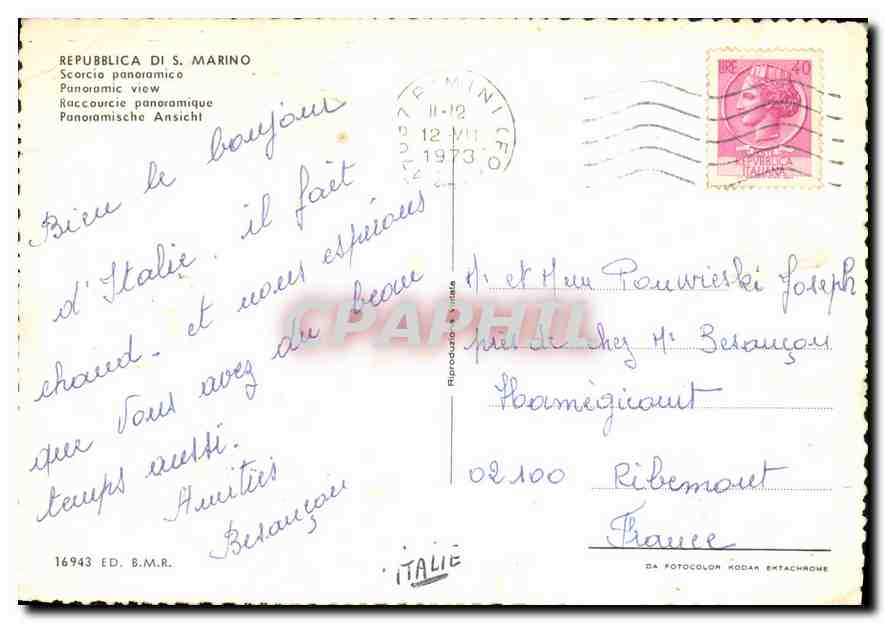 REPUBBLICA DI S. MARINO
Scorcio panoramico
Panoramic view
Raccourcie panoramique
Panoramische Ansicht
Bien le bonjour
d'Italie. il fait
chaud. et nous espérons
que vous avez du beau
temps aussi.
Amitiés
Besançon
16943 ED. B.M.R.
ITALIE
RIMINI (FO)
11-12
12 VII
1973
LIRE 40
REPUBBLICA
ITALIANA
Riproduzione vietata
CPAPHIL
Mr et Mme Joseph
près de chez Mr Besançon
Hamégicourt
02100 Ribemont
France
DA FOTOCOLOR KODAK EKTACHROME